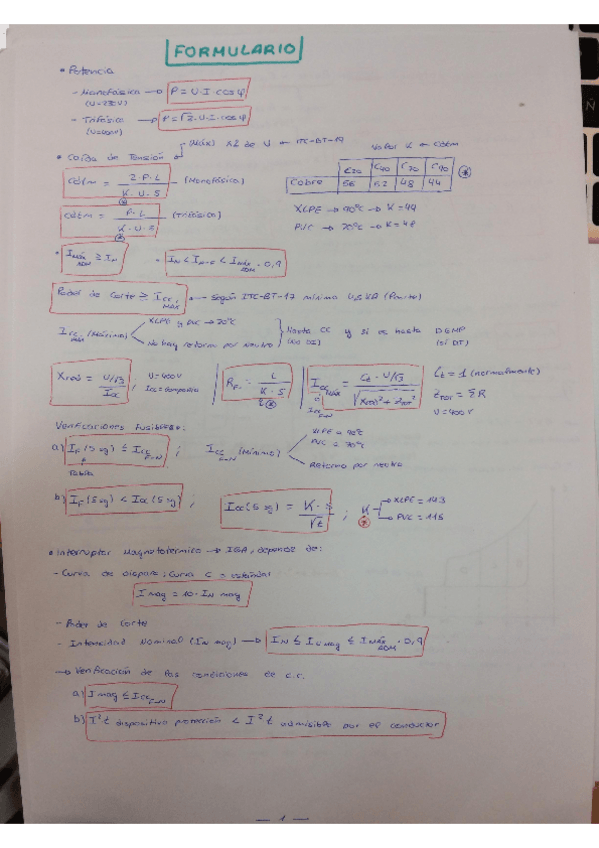 FORMULARIO
• Potencia
- Monofásica → P = U·I·cosφ
(U=230V)
- Trifásica → P = √2·U·I·cosφ
(U=400V)
(Máx) %2 de U ← ITC-BT-19
Valor K ← Cdtm
• Caída de Tensión
C20 C40 C70 C90
Cobre 56 52 48 44 *
Cdtm = 2·P·L / K·U·S (Monofásico)
XLPE → 90ºC → K=44
Cdtm = P·L / K·U·S (Trifásico)
PVC → 70ºC → K=48
• Imáx ADM ≥ IN - IN < IF-F < Imáx ADM · 0,9
Poder de Corte ≥ ICC MÁX → Según ITC-BT-17 mínimo 4,5 KA (Pn-to)
ICC (Máxima) XLPE y PVC → 20ºC
No hay retorno por Neutro
Hasta CC y si es hasta DGMP
Xred = U/√3 / ICC , U=400V ICC=Compañía
RF = L / K·S
ICC MÁX = Ct·U/√3 / √Xred² + Rtot²
Ct = 1 (normalmente)
U=400V
Verificaciones Fusibles:
a) IF (5 sg) ≤ ICC F-N ; ICC F-N (Mínima) XLPE = 90ºC
PVC = 70ºC
Tabla
Retorno por neutro
b) IF (5 sg) < ICC (5 sg) ; ICC (5 sg) = K·S / √t ; K XLPE = 143
PVC = 115
• Interruptor Magnetotérmico → IGA, depende de:
- Curva de disparo: Curva C = estándar
I mag = 10·IN mag
- Poder de Corte
- Intensidad Nominal (IN mag) → IN ≤ IN mag ≤ Imáx ADM · 0,9
→ Verificación de las condiciones de c.c.
a) I mag ≤ ICC F-N
b) I²t dispositivo protección < I²t admisible por el conductor
— 1 —